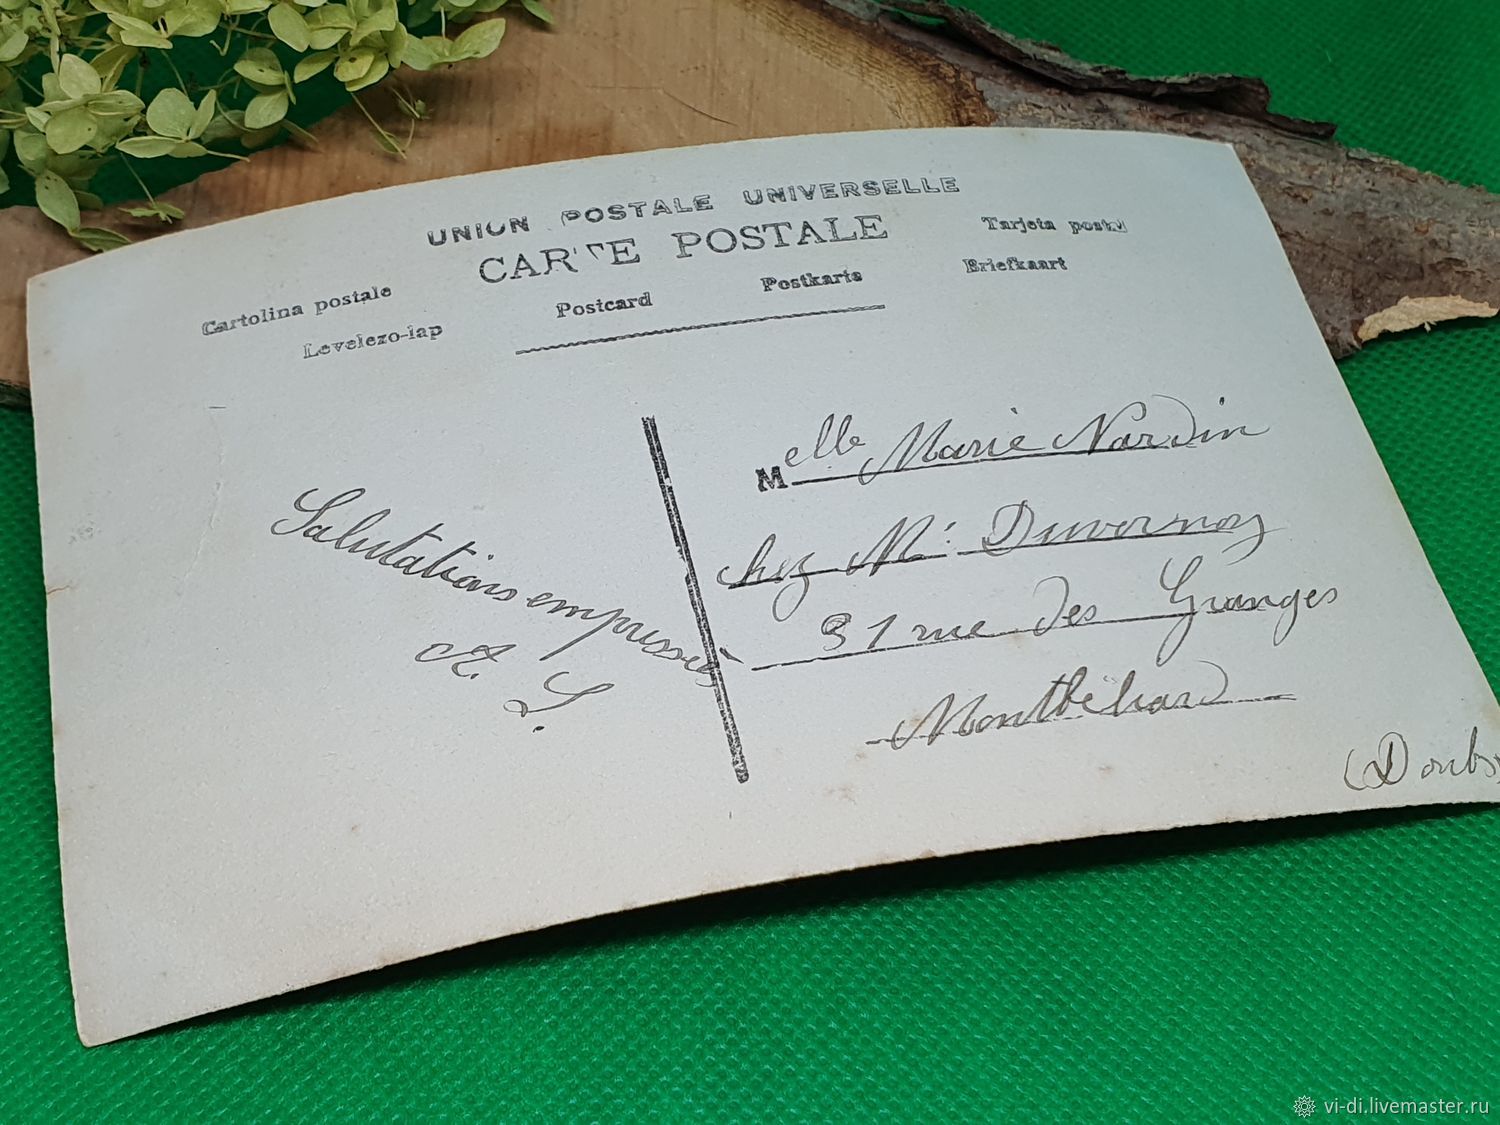 UNION POSTALE UNIVERSELLE
CARTE POSTALE
Tarjeta postal
Cartolina postale
Postcard
Postkarte
Briefkaart
Levelezo-lap
Salutations empressées
A. L.
Melle Marie Nardin
chez Mr Duvernoy
31 rue des Granges
Montbéliard
(Doubs)
vi-di.livemaster.ru